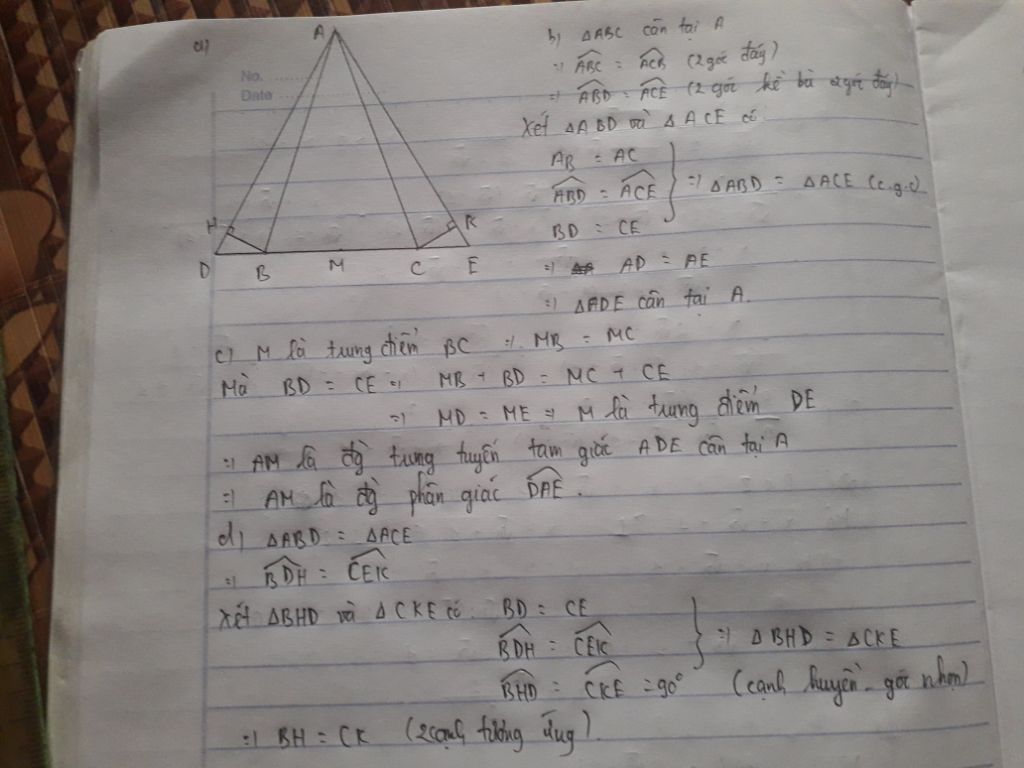 a)
A
No. ............
Date ............
H
K
D B M C E
b) ΔABC cân tại A
=> ABC = ACB (2 góc đáy)
=> ABD = ACE (2 góc kề bù 2 góc đáy)
Xét ΔABD và ΔACE có
AB = AC
ABD = ACE => ΔABD = ΔACE (c.g.c)
BD = CE
=> AD = AE
=> ΔADE cân tại A.
c) M là trung điểm BC => MB = MC
Mà BD = CE => MB + BD = MC + CE
=> MD = ME => M là trung điểm DE
=> AM là đg trung tuyến tam giác ADE cân tại A
=> AM là đg phân giác DAE.
d) ΔABD = ΔACE
=> BDH = CEK
Xét ΔBHD và ΔCKE có BD = CE
BDH = CEK => ΔBHD = ΔCKE
BHD = CKE = 90° (cạnh huyền - góc nhọn)
=> BH = CK (2 cạnh tương ứng).